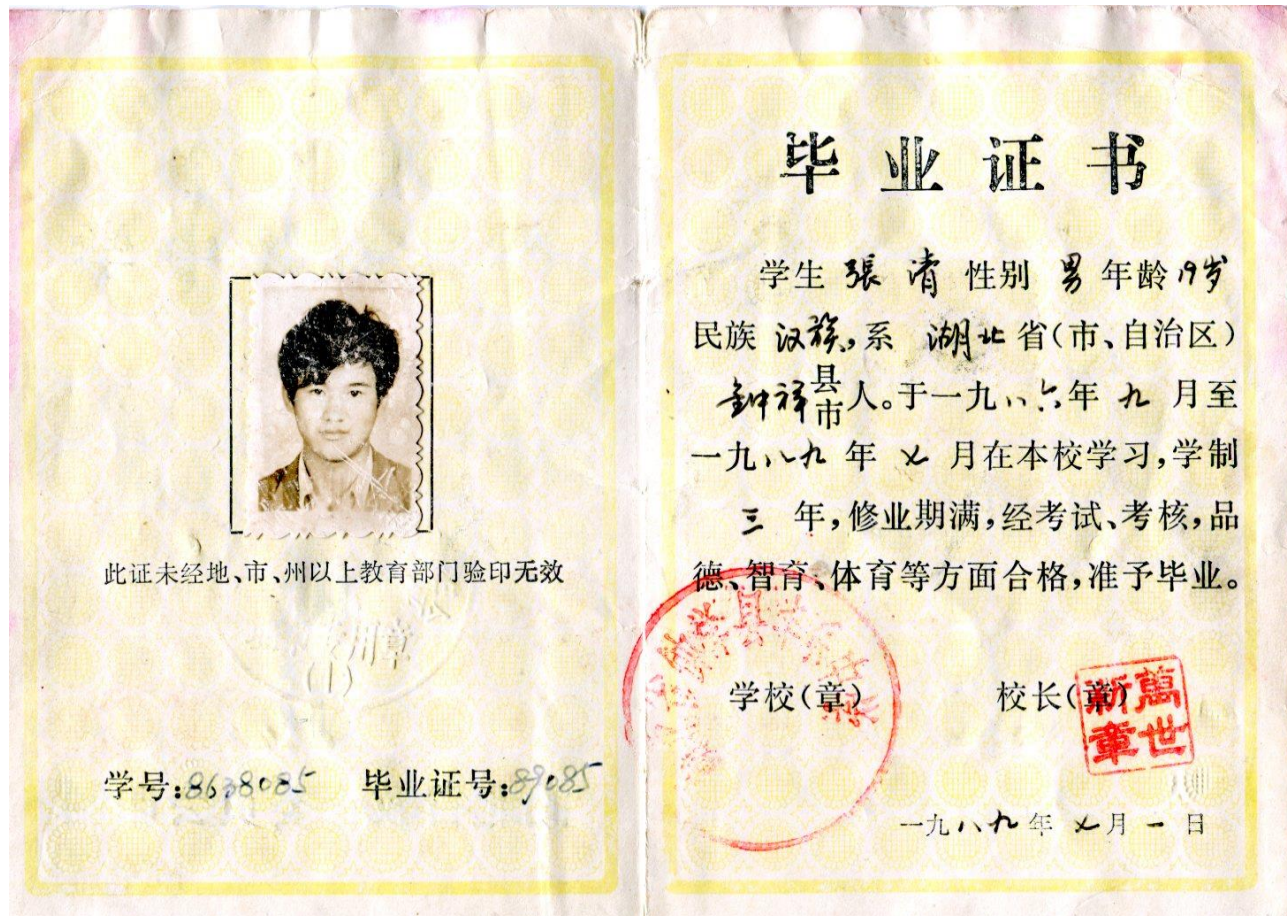 此证未经地、市、州以上教育部门验印无效
学号:8638085 毕业证号:89085
毕业证书
学生 張清 性别 男 年龄 19岁
民族 汉族,系 湖北 省(市、自治区)
鈡祥县市人。于一九八六年 九 月至
一九八九 年 七 月在本校学习,学制
三 年,修业期满,经考试、考核,品
德、智育、体育等方面合格,准予毕业。
学校(章) 校长(章)
萬世新章
一九八九年 七月 一 日